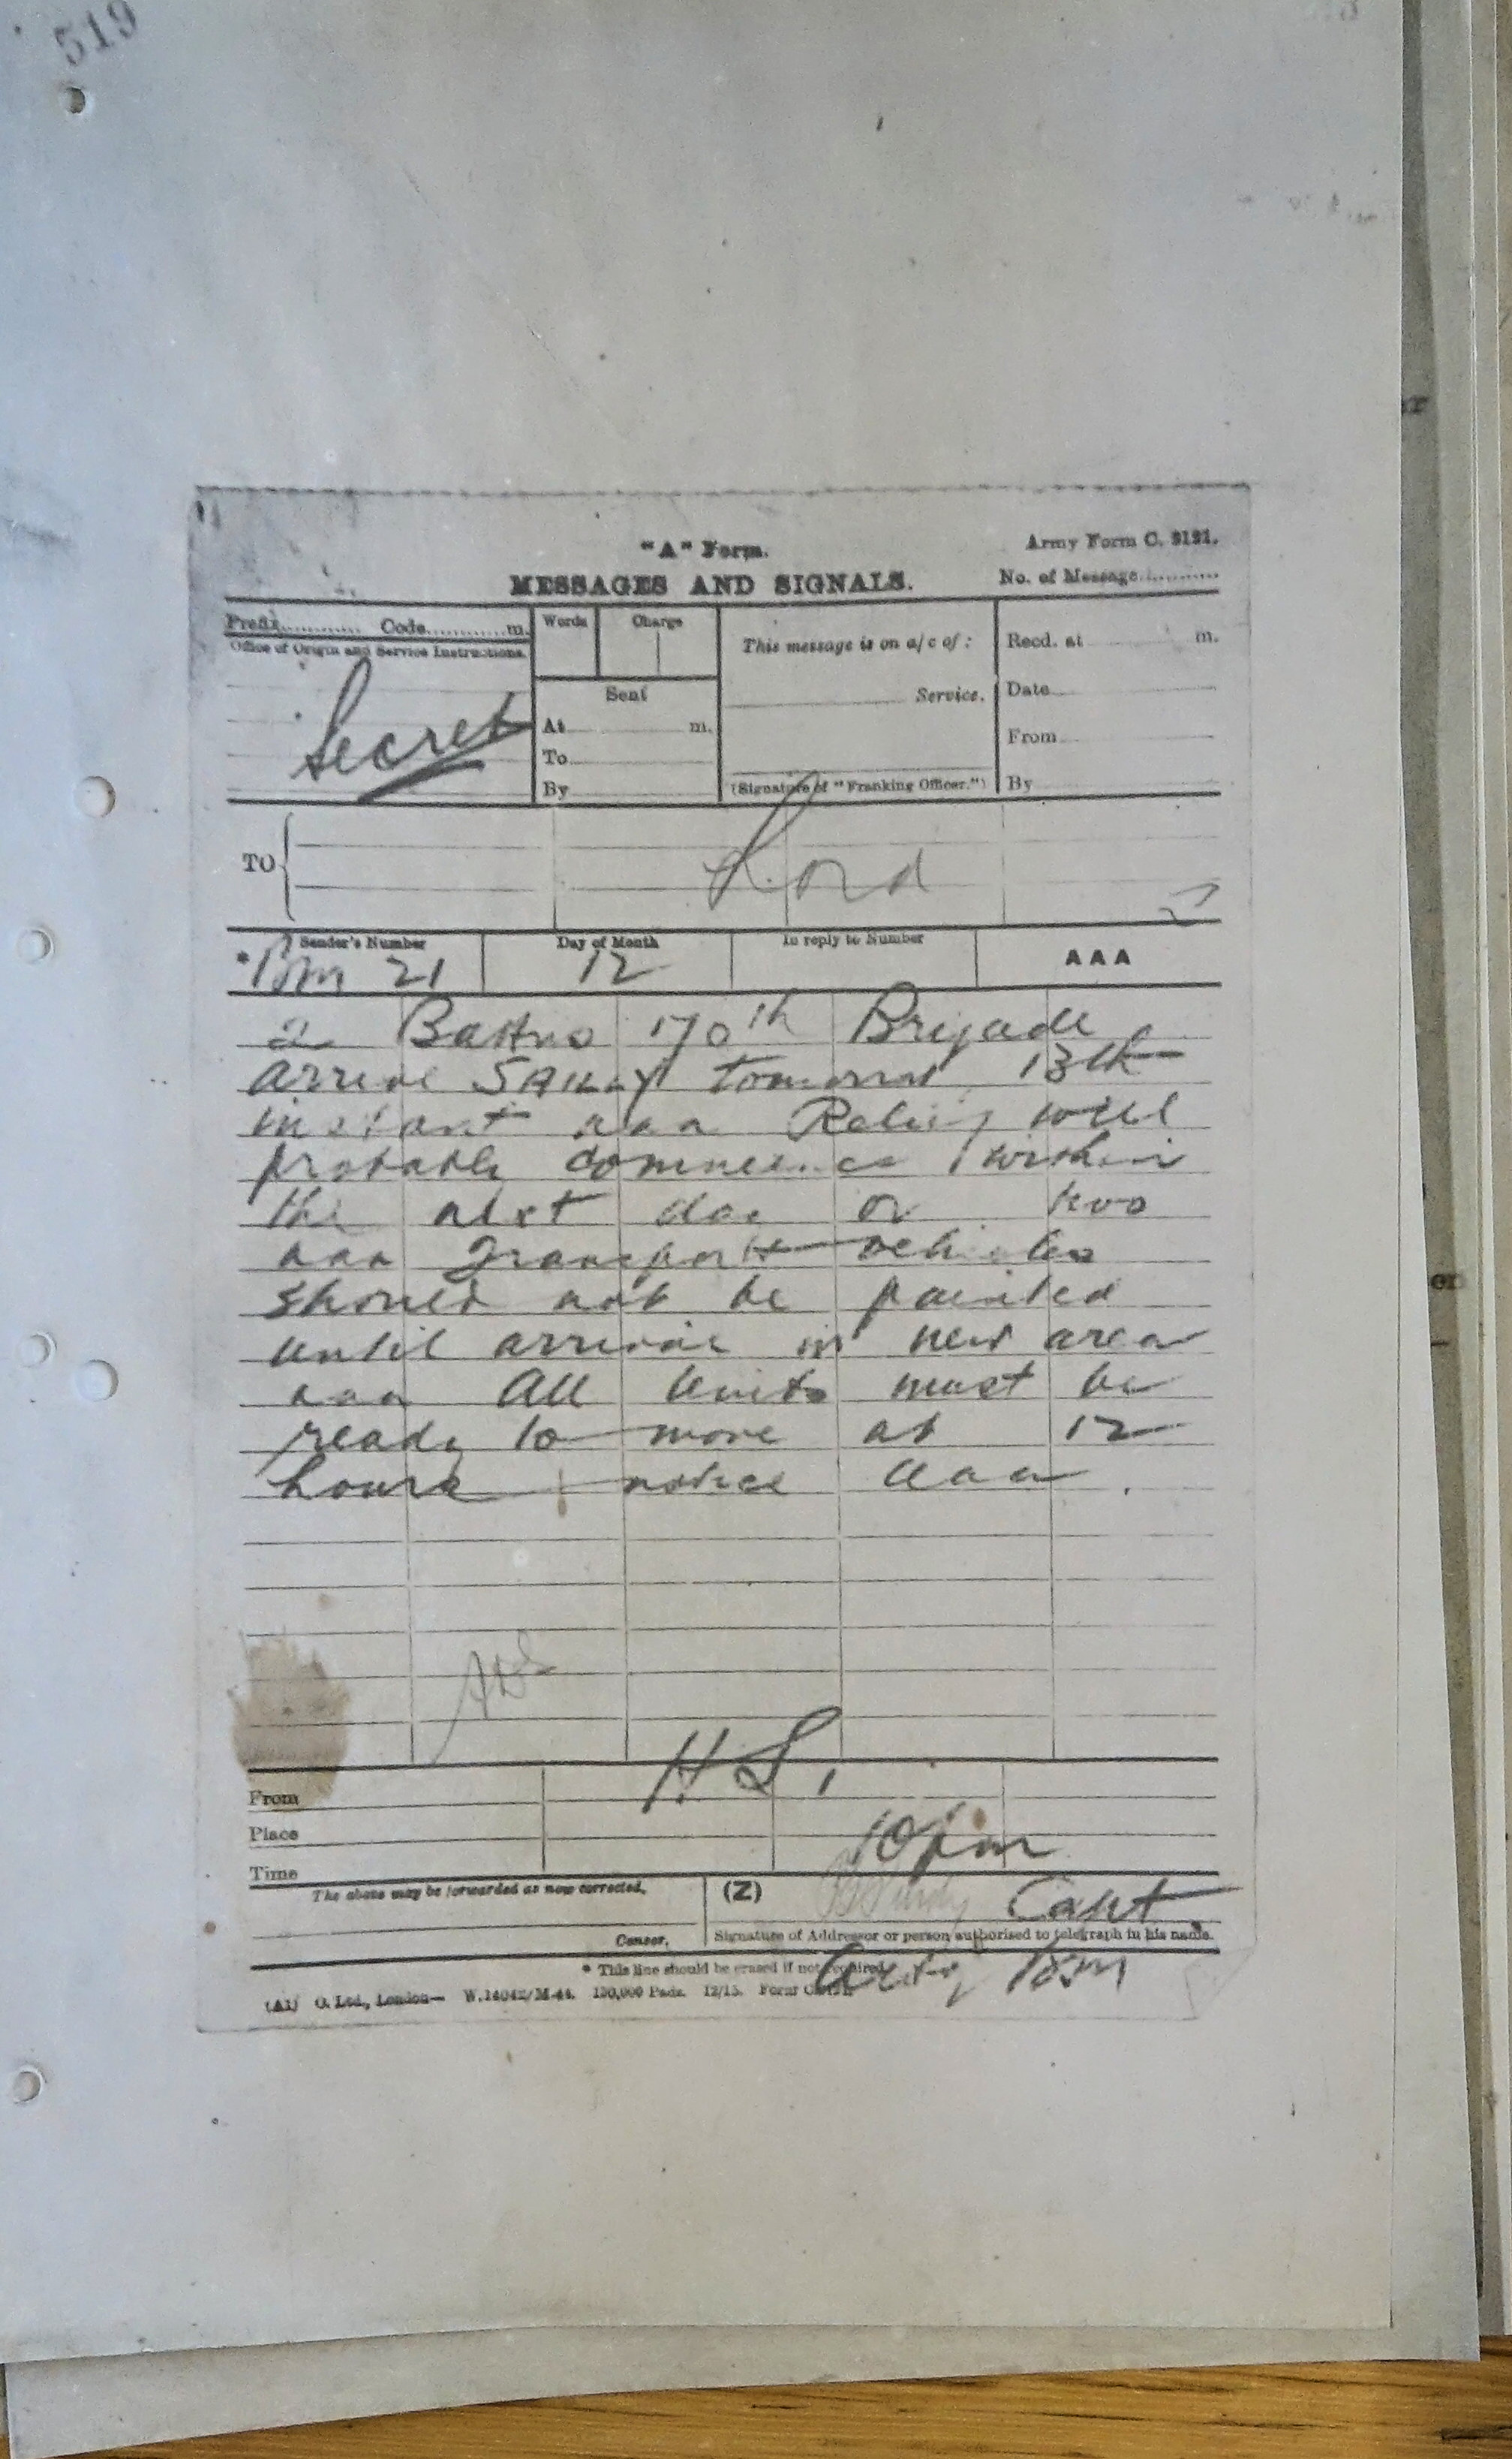 519
"A" Form.
Army Form C. 2121.
MESSAGES AND SIGNALS.
No. of Message
Prefix Code m.
Words Charge
This message is on a/c of :
Recd. at m.
Office of Origin and Service Instructions.
Secret
Sent
Service.
Date
At m.
From
To
By
(Signature of "Franking Officer.")
By
TO
Lord
Sender's Number
Day of Month
In reply to Number
AAA
* BM 21
12
2 Battns 170th Brigade
arrive SAILLY tomorrow 13th
instant aaa Relief will
probably commence within
the next day or two
aaa Transport vehicles
should not be painted
until arrival in new area
aaa All Units must be
ready to move at 12
hours notice aaa.
From
H.L.
Place
10 pm
Time
The above may be forwarded as now corrected.
(Z)
Capt.
Censor.
Signature of Addressor or person authorised to telegraph in his name.
* This line should be erased if not required.
BM
(A1) O. Ltd., London— W.14042/M-44. 150,000 Pads. 12/15. Form